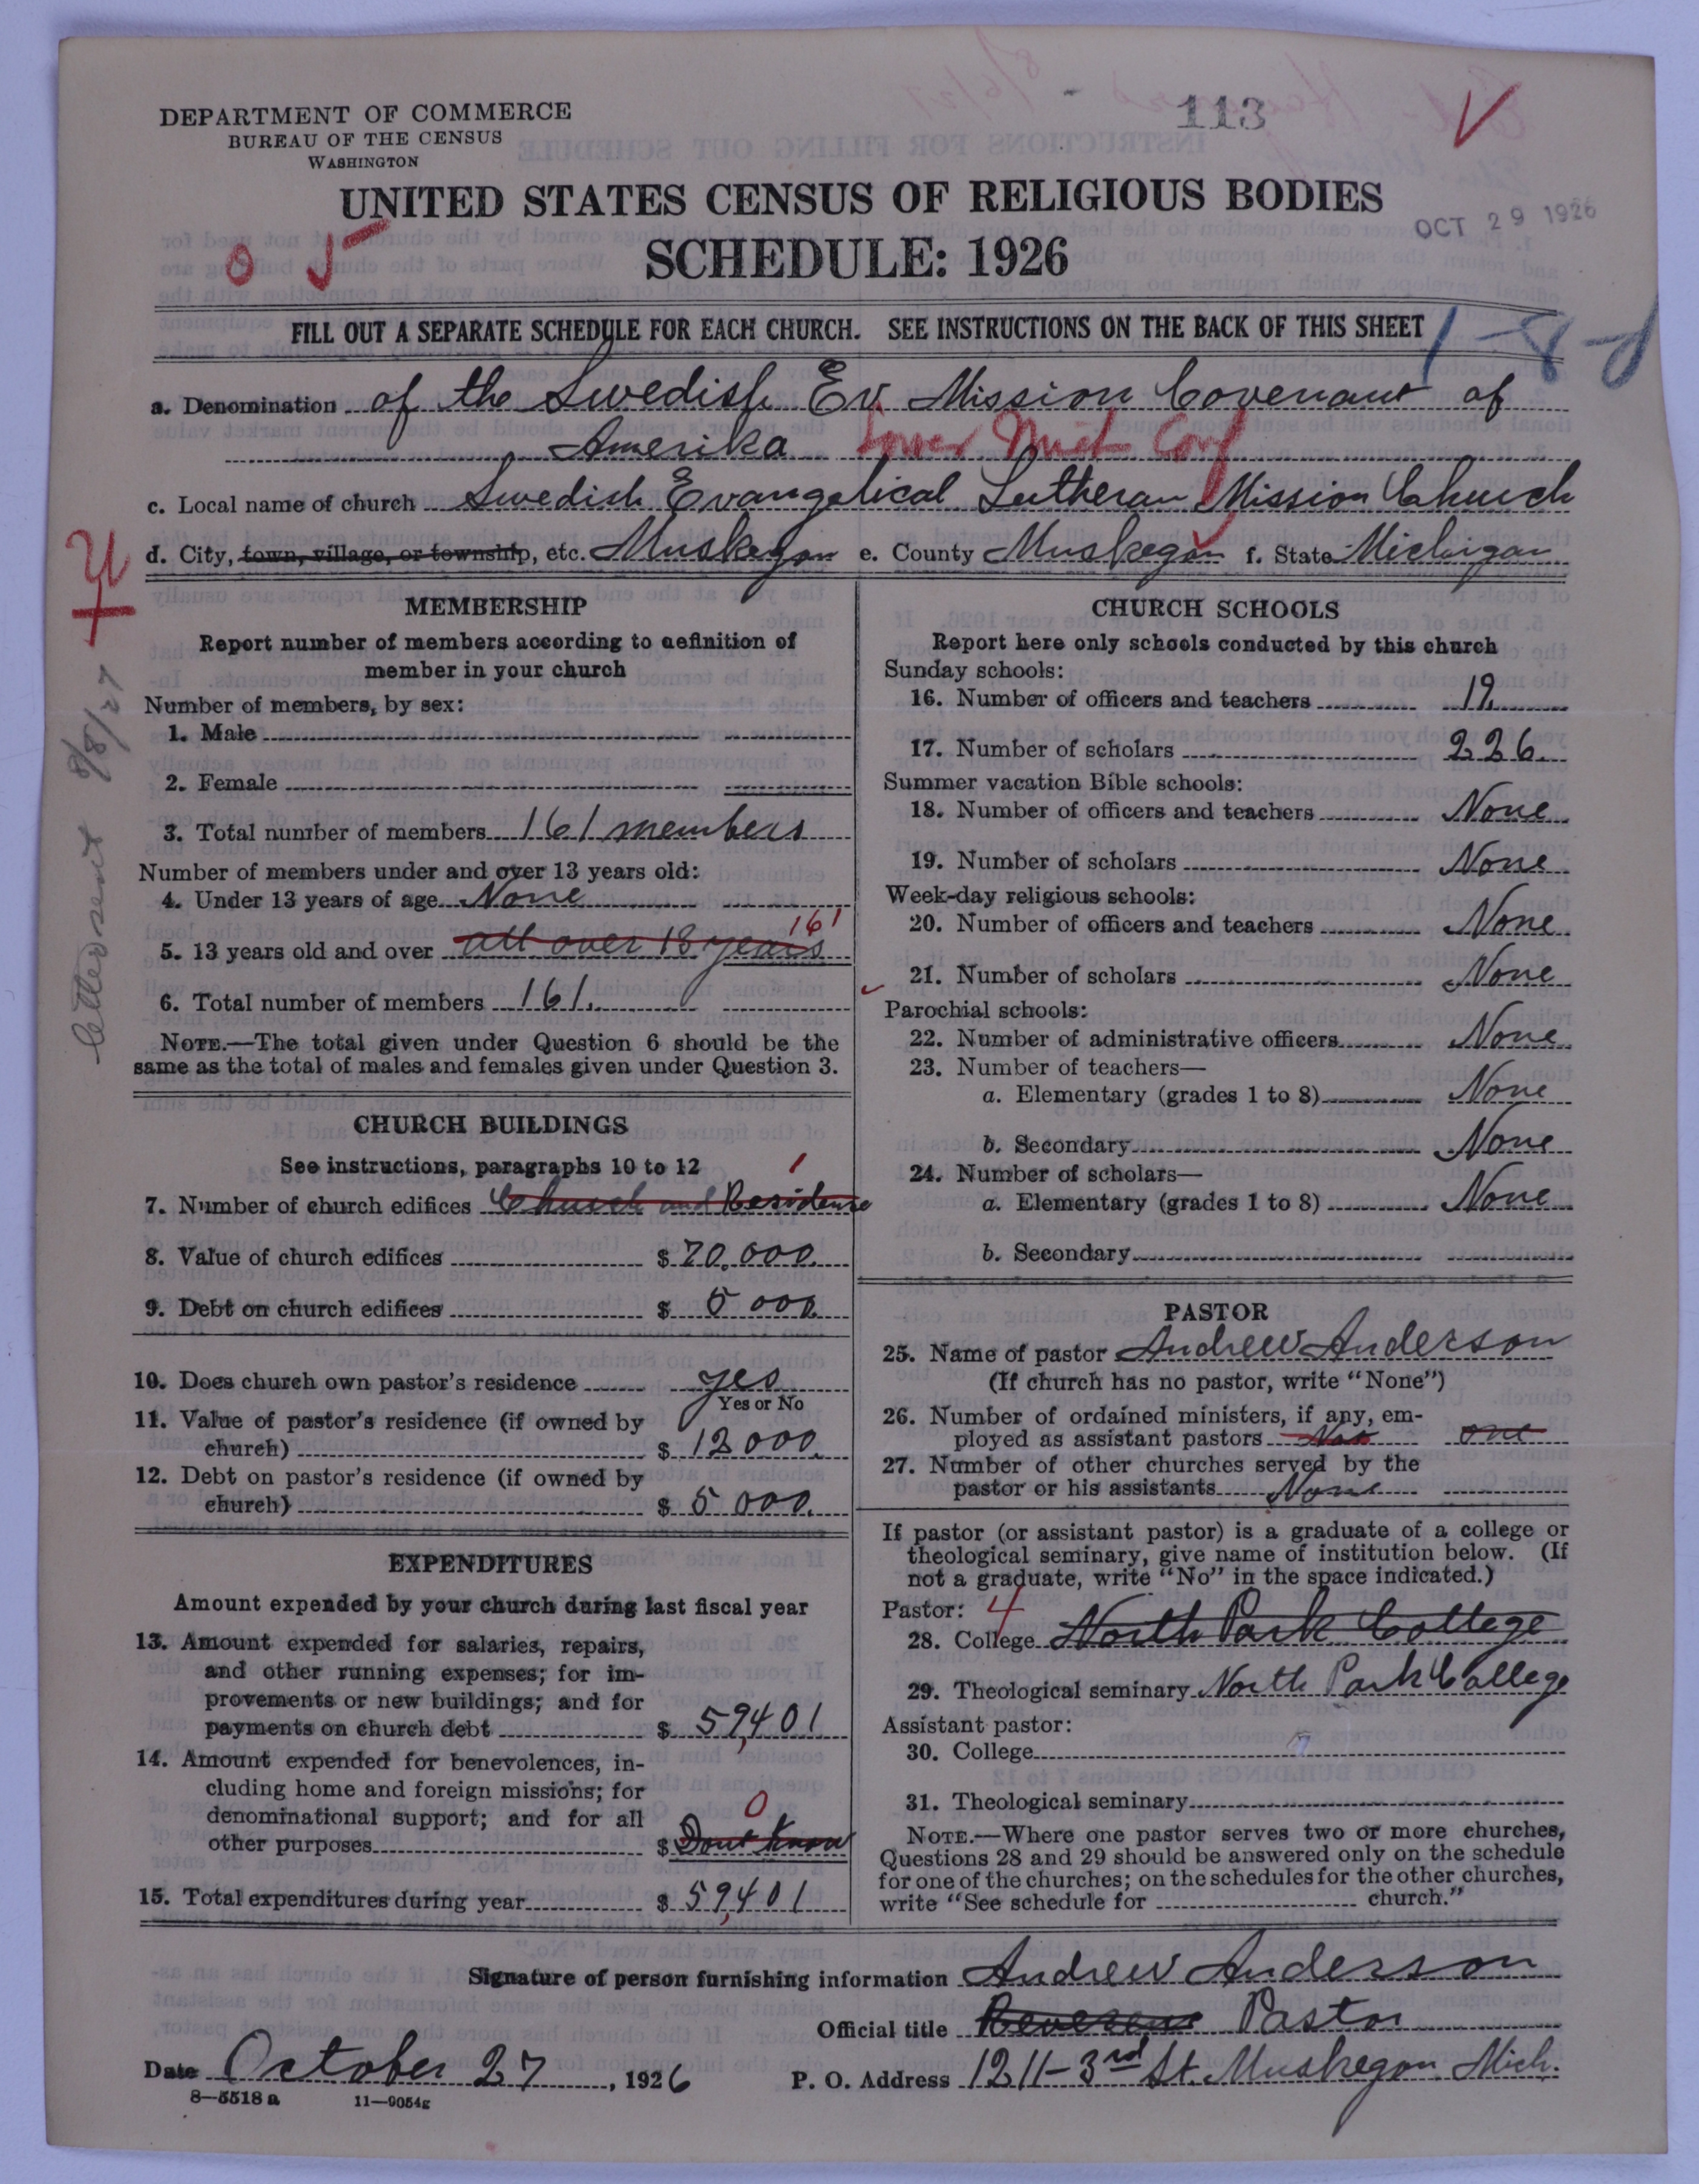 113
DEPARTMENT OF COMMERCE
BUREAU OF THE CENSUS
WASHINGTON
UNITED STATES CENSUS OF RELIGIOUS BODIES
OCT 29 1926
SCHEDULE: 1926
FILL OUT A SEPARATE SCHEDULE FOR EACH CHURCH. SEE INSTRUCTIONS ON THE BACK OF THIS SHEET
a. Denomination of the Swedish Ev. Mission Covenant of
Amerika
c. Local name of church Swedish Evangelical Lutheran Mission Church
d. City, town, village, or township, etc. Muskegon e. County Muskegon f. State Michigan
MEMBERSHIP
Report number of members according to definition of
member in your church
Number of members, by sex:
1. Male
2. Female
3. Total number of members 161 members
Number of members under and over 13 years old:
4. Under 13 years of age None
161
5. 13 years old and over all over 18 years
6. Total number of members 161.
NOTE.—The total given under Question 6 should be the
same as the total of males and females given under Question 3.
CHURCH BUILDINGS
See instructions, paragraphs 10 to 12
1
7. Number of church edifices Church and Residence
8. Value of church edifices $ 20,000.
9. Debt on church edifices $ 5 000.
10. Does church own pastor's residence yes
Yes or No
11. Value of pastor's residence (if owned by
church) $ 12 000.
12. Debt on pastor's residence (if owned by
church) $ 5 000.
EXPENDITURES
Amount expended by your church during last fiscal year
13. Amount expended for salaries, repairs,
and other running expenses; for im-
provements or new buildings; and for
payments on church debt $ 59,401
14. Amount expended for benevolences, in-
cluding home and foreign missions; for
denominational support; and for all
0
other purposes $ Dont know
15. Total expenditures during year $ 59,401
CHURCH SCHOOLS
Report here only schools conducted by this church
Sunday schools:
16. Number of officers and teachers 19
17. Number of scholars 226.
Summer vacation Bible schools:
18. Number of officers and teachers None
19. Number of scholars None
Week-day religious schools:
20. Number of officers and teachers None
21. Number of scholars None
Parochial schools:
22. Number of administrative officers None
23. Number of teachers—
a. Elementary (grades 1 to 8) None
b. Secondary None
24. Number of scholars—
a. Elementary (grades 1 to 8) None
b. Secondary
PASTOR
25. Name of pastor Andrew Anderson
(If church has no pastor, write "None")
26. Number of ordained ministers, if any, em-
ployed as assistant pastors one
27. Number of other churches served by the
pastor or his assistants None
If pastor (or assistant pastor) is a graduate of a college or
theological seminary, give name of institution below. (If
not a graduate, write "No" in the space indicated.)
Pastor: 4
28. College North Park College
29. Theological seminary North Park College
Assistant pastor:
30. College
31. Theological seminary
NOTE.—Where one pastor serves two or more churches,
Questions 28 and 29 should be answered only on the schedule
for one of the churches; on the schedules for the other churches,
write "See schedule for church."
Signature of person furnishing information Andrew Anderson
Official title Reverend Pastor
Date October 27, 1926 P. O. Address 1211-3rd St. Muskegon Mich.
8—5518 a 11—9054g